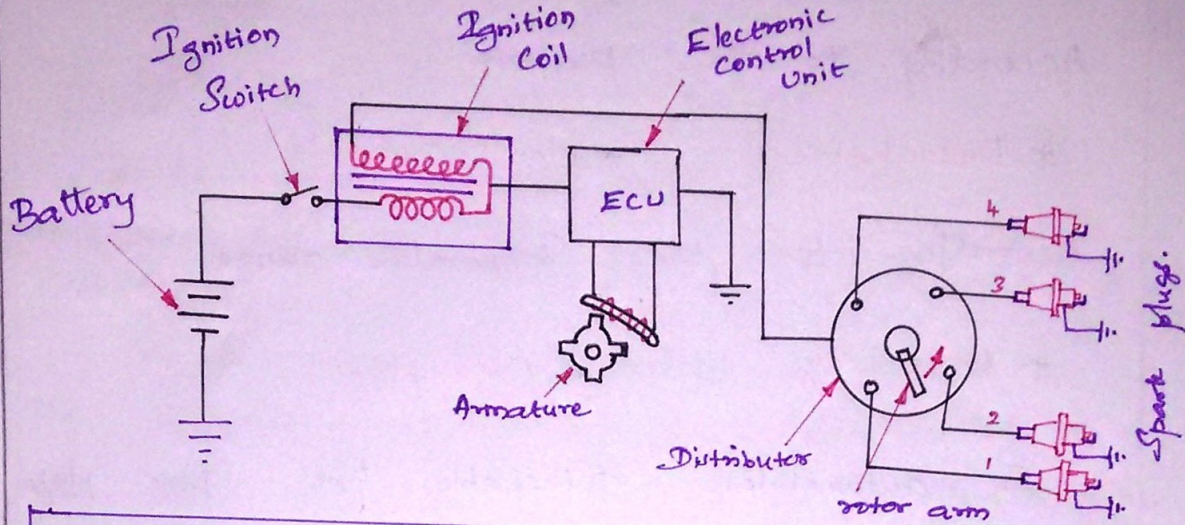 Ignition
Switch
Ignition
Coil
Electronic
control
unit
Battery
ECU
Armature
Distributor
rotor arm
4
3
2
1
Spark plugs.